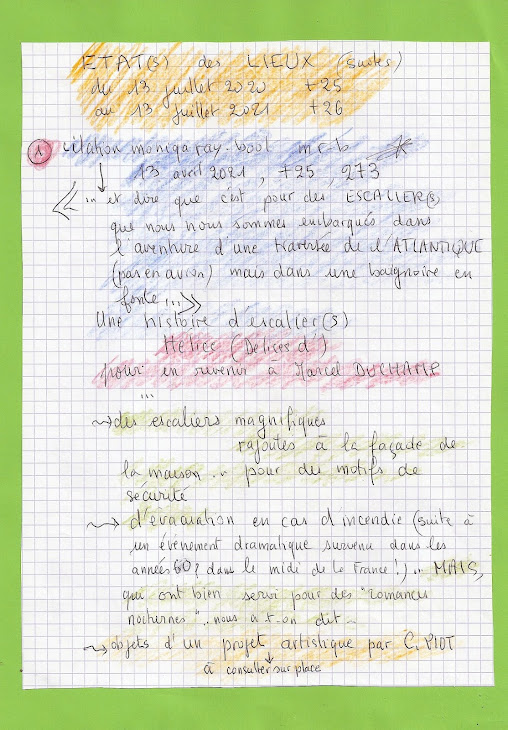 ETAT(s) des LIEUX (suites)
du 13 juillet 2020 +25
au 13 juillet 2021 +26
1 citation moniqa ray. bool m r-b
13 avril 2021, +25, 273
<< ... et dire que c'est pour des ESCALIER(s)
que nous nous sommes embarqués dans
l'aventure d'une traversée de l'ATLANTIQUE
(pas en avion) mais dans une baignoire en
fonte ... >>
Une histoire d'escalier(s)
Hélices (Délices d')
pour en revenir à Marcel DUCHAMP
...
des escaliers magnifiques
rajoutés à la façade de
la maison ... pour des motifs de
sécurité
d'évacuation en cas d'incendie (suite à
un événement dramatique survenu dans les
années 60? dans le midi de la France!) ... MAIS,
qui ont bien servi pour des "romances
nocturnes".. nous a-t-on dit...
objets d'un projet artistique par C. PIOT
à consulter sur place